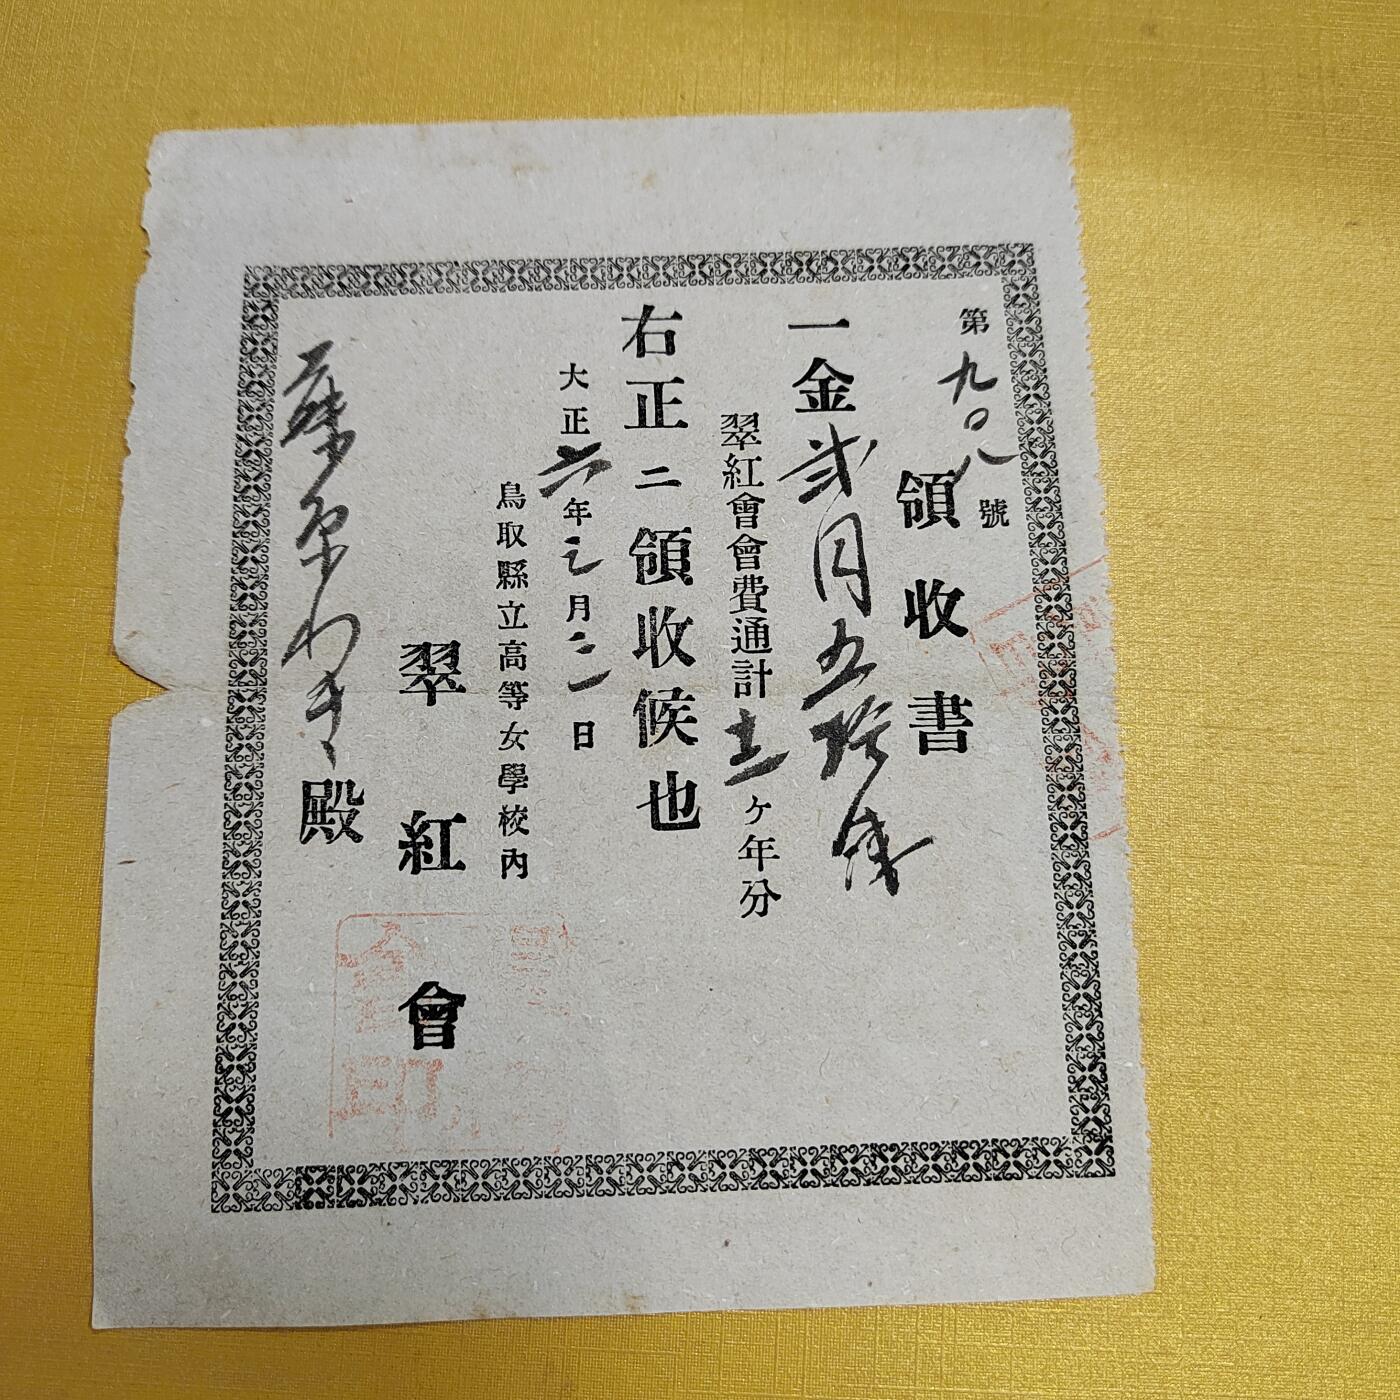 第九〇八號
領收書
一金貳円五拾銭
翠紅會會費通計
ヶ年分
右正ニ領收候也
大正六年三月三日
鳥取縣立高等女學校內
翠紅會
殿